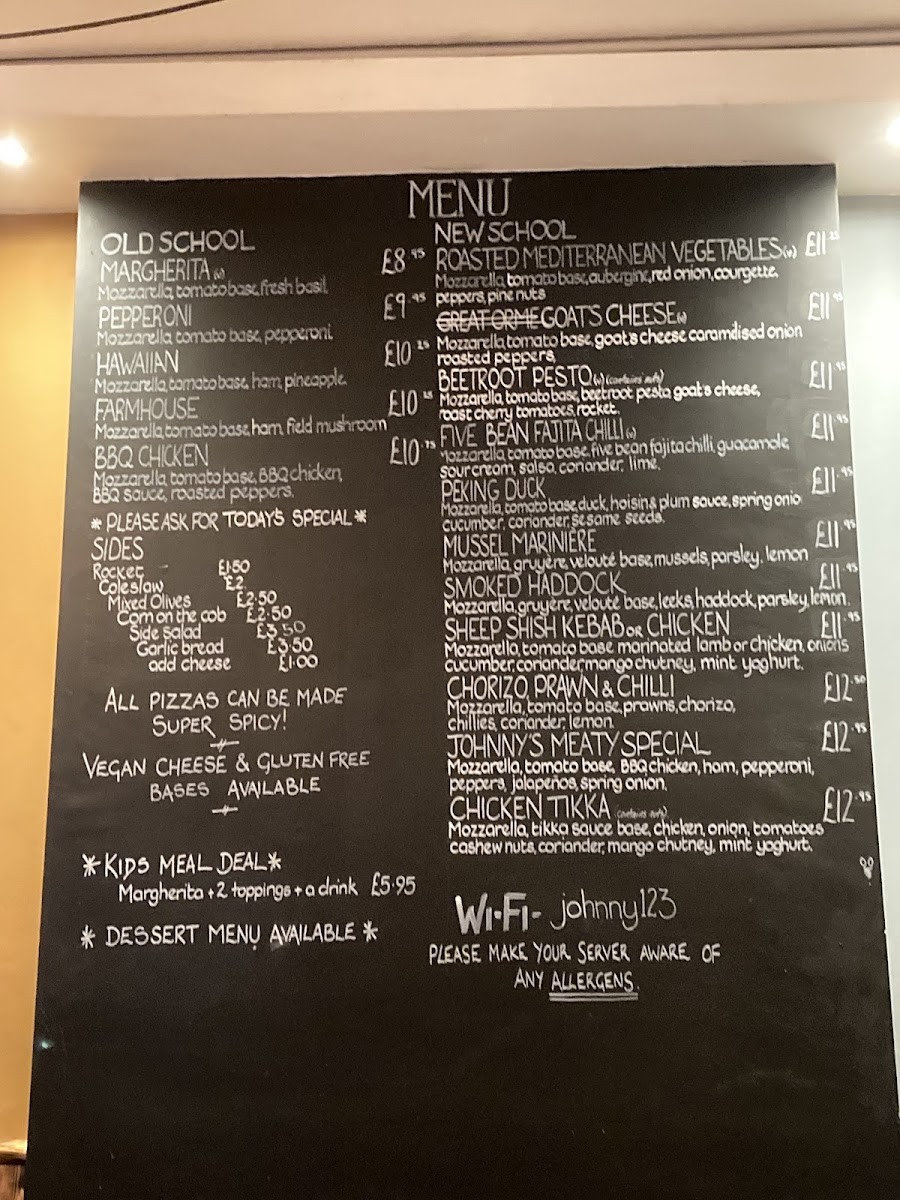 MENU
OLD SCHOOL
MARGHERITA (v) £8.95
Mozzarella, tomato base, fresh basil
PEPPERONI £9.95
Mozzarella, tomato base, pepperoni.
HAWAIIAN £10.25
Mozzarella, tomato base, ham, pineapple.
FARMHOUSE £10
Mozzarella, tomato base, ham, field mushroom
BBQ CHICKEN £10.75
Mozzarella, tomato base, BBQ chicken,
BBQ sauce, roasted peppers.
* PLEASE ASK FOR TODAY'S SPECIAL *
SIDES
Rocket £1.50
Coleslaw £2
Mixed Olives £2.50
Corn on the cob £2.50
Side salad £3.50
Garlic bread £3.50
add cheese £1.00
ALL PIZZAS CAN BE MADE
SUPER SPICY!
VEGAN CHEESE & GLUTEN FREE
BASES AVAILABLE
* KIDS MEAL DEAL *
Margherita + 2 toppings + a drink £5.95
* DESSERT MENU AVAILABLE *
NEW SCHOOL
ROASTED MEDITERRANEAN VEGETABLES (v) £11.25
Mozzarella, tomato base, aubergine, red onion, courgette,
peppers, pine nuts
GREAT ORME GOAT'S CHEESE (v) £11.95
Mozzarella, tomato base, goat's cheese caramelised onion
roasted peppers,
BEETROOT PESTO (v) (contains nuts) £11.95
Mozzarella, tomato base, beetroot pesto, goat's cheese,
roast cherry tomatoes, rocket.
FIVE BEAN FAJITA CHILLI (v) £11.95
Mozzarella, tomato base, five bean fajita chilli, guacamole,
sour cream, salsa, coriander, lime.
PEKING DUCK £11.95
Mozzarella, tomato base, duck, hoisin & plum sauce, spring onio
cucumber, coriander, sesame seeds.
MUSSEL MARINIÈRE £11.95
Mozzarella, gruyère, velouté base, mussels, parsley, lemon
SMOKED HADDOCK £11.95
Mozzarella, gruyère, velouté base, leeks, haddock, parsley, lemon.
SHEEP SHISH KEBAB OR CHICKEN £11.95
Mozzarella, tomato base marinated lamb or chicken, onions
cucumber, coriander, mango chutney, mint yoghurt.
CHORIZO, PRAWN & CHILLI £12.50
Mozzarella, tomato base, prawns, chorizo,
chillies, coriander, lemon.
JOHNNY'S MEATY SPECIAL £12.95
Mozzarella, tomato base, BBQ chicken, ham, pepperoni,
peppers, jalapeños, spring onion.
CHICKEN TIKKA (contains nuts) £12.95
Mozzarella, tikka sauce base, chicken, onion, tomatoes
cashew nuts, coriander, mango chutney, mint yoghurt.
WI-FI - johnny123
PLEASE MAKE YOUR SERVER AWARE OF
ANY ALLERGENS.